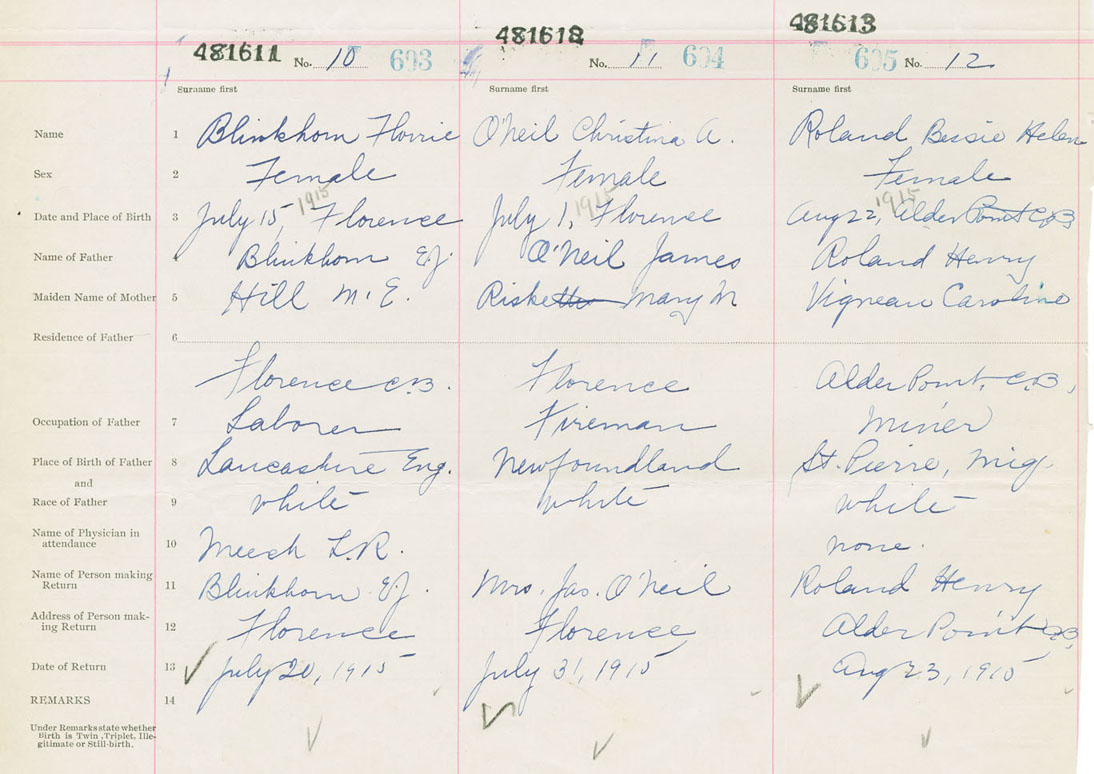 481611 481612 481613
No. 10 603 No. 11 604 605 No. 12
Surname first Surname first Surname first
Name 1 Blinkhorn Florrie O'Neil Christina A. Roland Bessie Helen
Sex 2 Female Female Female
1915 1915 1915
Date and Place of Birth 3 July 15, Florence July 1, Florence Aug 22, Alder Point C.B
Name of Father 4 Blinkhorn E.J. O'Neil James Roland Henry
Maiden Name of Mother 5 Hill M. E. Riske Mary M Vigneau Caroline
Residence of Father 6
Florence C.B. Florence Alder Point, C.B,
Occupation of Father 7 Laborer Fireman Miner
Place of Birth of Father 8 Lancashire Eng. Newfoundland St. Pierre, Miq.
and
Race of Father 9 white white white
Name of Physician in
attendance 10 Meech L.R. none.
Name of Person making
Return 11 Blinkhorn E.J. Mrs. Jas. O'Neil Roland Henry
Address of Person mak-
ing Return 12 Florence Florence Alder Point C.B.
Date of Return 13 July 20, 1915 July 31, 1915 Aug 23, 1915
REMARKS 14
Under Remarks state whether
Birth is Twin, Triplet, Ille-
gitimate or Still-birth.